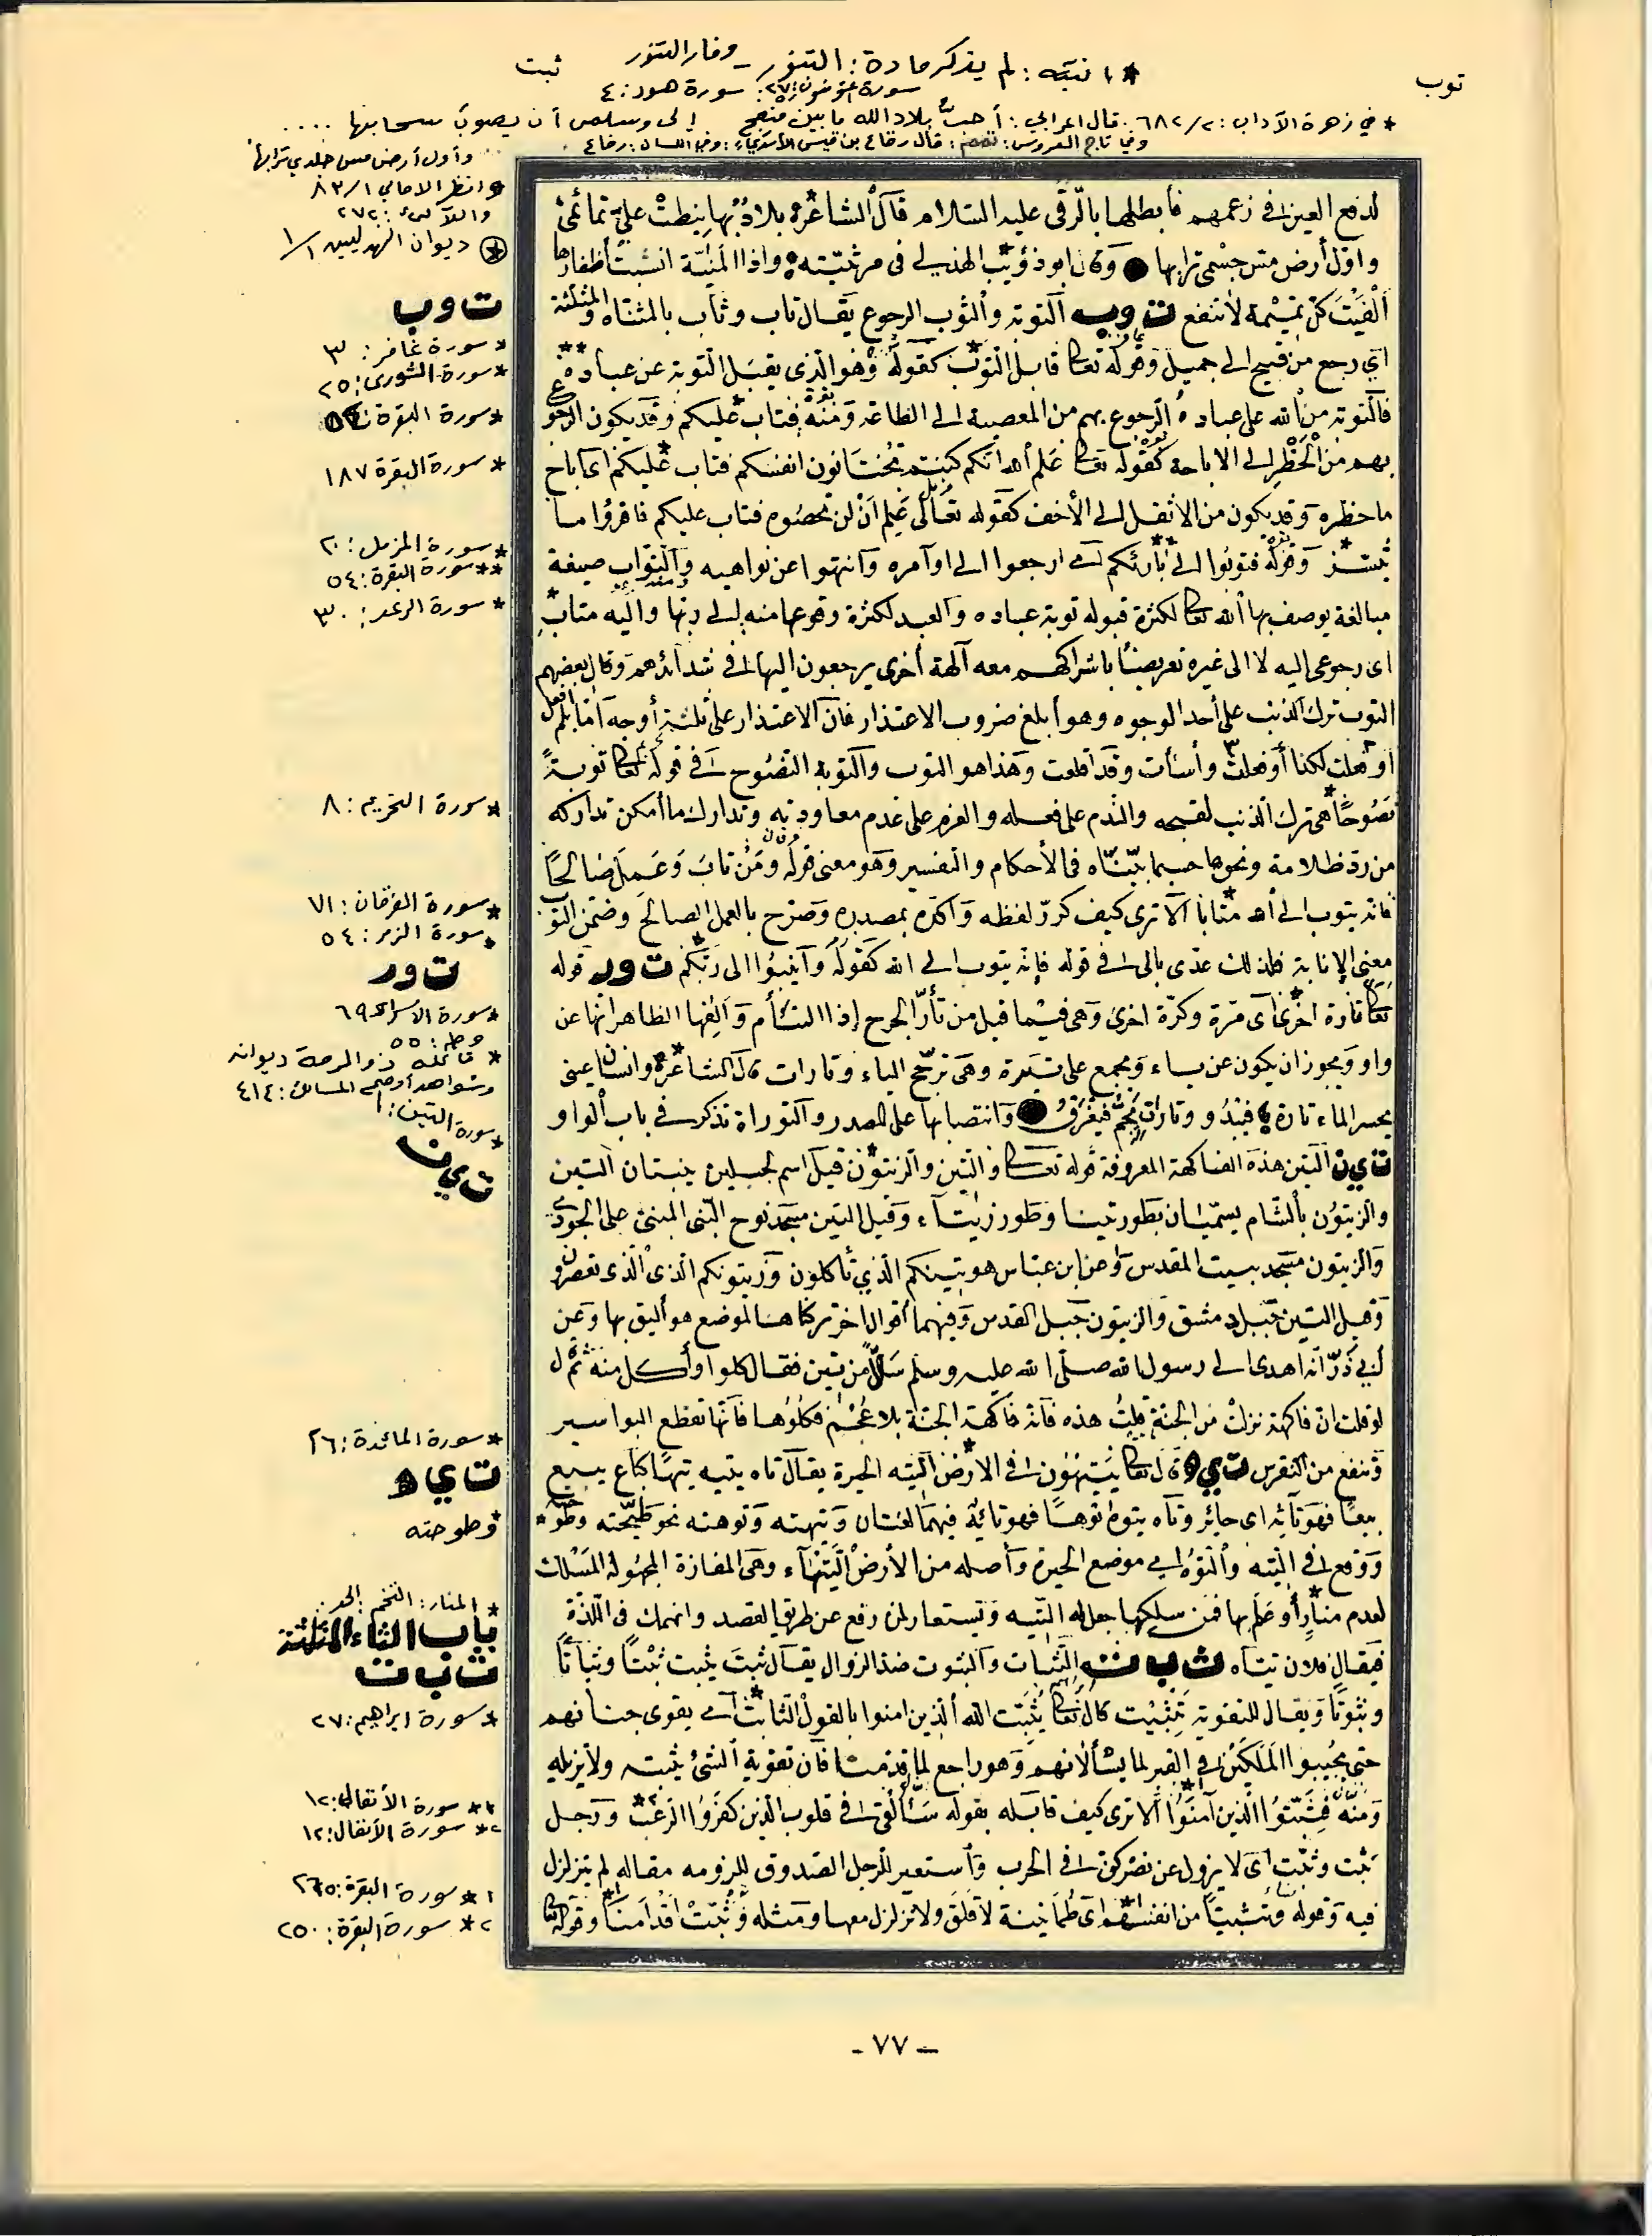 توب
ثبت
* ١ نتبه : لم يذكر مادة : التنور _ وفار التنور
سورة المؤمنون: ٢٧. سورة هود: ٤
* في زهرة الآداب : ٦٨٢/٢ . قال اعرابي : أحب بلاد الله ما بين منعج إلى وسلمى أن يصوب سحابها ....
وفي تاج العروس : قال رقاع بن قيس الأسدي : وفي اللسان : رقاع
وأول أرض مس جلدي ترابها
* وانظر الامالي ٨٣/١
واللآلئ : ٢٧٢
* ديوان الهذليين ١/١
لدفع العين في زعمهم فأبطلها بالرقى عليه السلام قال الشاعر بلاد بها نيطت علي تمائمي
وأول أرض مس جسمي ترابها وقال ابو ذؤيب الهذلي في مرثيته واذا المنية انشبت أظفارها
ألفيت كل تميمة لا تنفع ت وب التوبة والتوب الرجوع يقال تاب وثاب بالمثناة والمثلثة
أي رجع من قبيح الى جميل وقوله تعالى قابل التوب كقوله وهو الذي يقبل التوبة عن عباده
فالتوبة من الله على عباده الرجوع بهم من المعصية الى الطاعة ومنه فتاب عليكم وقد يكون الرجوع
بهم من الحظر الى الاباحة كقوله تعالى علم الله انكم كنتم تختانون انفسكم فتاب عليكم اي اباح
ما حظره وقد يكون من الاثقل الى الأخف كقوله تعالى علم أن لن تحصوه فتاب عليكم فاقرؤا ما
تيسر وقوله فتوبوا الى بارئكم أي ارجعوا الى اوامره وانتهوا عن نواهيه والتواب صيغة
مبالغة يوصف بها الله تعالى لكثرة قبوله توبة عباده والعبد لكثرة وقوعها منه الى ربها واليه متاب
اى رجوعي اليه لا الى غيره تعريضا باشراكهم معه آلهة أخرى يرجعون اليها في شدائدهم وقال بعضهم
التوب ترك الذنب على أحد الوجوه وهو أبلغ ضروب الاعتذار فان الاعتذار على ثلثة أوجه اما لم افعل
او فعلت لكذا أو فعلت وأسأت وقد اقلعت وهذا هو التوب والتوبة النصوح في قوله تعالى توبة
نصوحا هي ترك الذنب لقبحه والندم على فعله والعزم على عدم معاودته وتدارك ما أمكن تداركه
من رد ظلامة ونحوها حسبما بيناه في الأحكام والتفسير وهو معنى قوله ومن تاب وعمل صالحا
فانه يتوب الى الله متابا ألا ترى كيف كرر لفظه واكده بمصدره وصرح بالعمل الصالح وضمن التوب
معنى الإنابة فلذلك عدى بالى في قوله فإنه يتوب الى الله كقوله وأنيبوا الى ربكم ت ور قوله
تعالى تارة اخرى أي مرة وكرة اخرى وهي فيما قيل من تأر الجرح إذا التأم والفها الظاهر انها عن
واو ويجوز ان يكون عن ياء ويجمع على تيرة وهي ترجح الياء وتارات قال الشاعر وانسان عيني
يحسر الماء تارة فيبدو وتارات يجم فيغرق وانتصابها على المصدر والتوراة تذكر في باب الواو
ت ي ن التين هذه الفاكهة المعروفة قوله تعالى والتين والزيتون قيل اسم لجبلين ينبتان التين
والزيتون بالشام يسميان بطور تينا وطور زيتآء وقيل التين مسجد نوح النبي المبني على الجودي
والزيتون مسجد بيت المقدس وعن ابن عباس هو تينكم الذي تأكلون وزيتونكم الذي تعصرون
وقيل التين جبل دمشق والزيتون جبل القدس وفيهما أقوال اخر تركناها لموضع هو أليق بها وعن
أبي ذر انه اهدى الى رسول الله صلى الله عليه وسلم سل من تين فقال كلوا وأكل منه ثم قال
لو قلت ان فاكهة نزلت من الجنة قلت هذه فانه فاكهة الجنة بلا عجم فكلوها فانها تقطع البواسير
وتنفع من النقرس ت ي ه قال تعالى يتيهون في الارض التيه الحيرة يقال تاه يتيه تيها كباع يبيع
بيعا فهو تائه اى حائر وتاه يتوه توها فهو تائه فيهما لغتان وتيهته وتوهته نحو طيحته وطوحته
ووقع في التيه والتوه اي موضع الحيرة وأصله من الأرض التيهآء وهي المفازة المجهولة المسلك
لعدم منار أو علم بها فمن سلكها جعل له التيه وتستعار لمن رفع عن طريق القصد وانهمك في اللذة
فيقال فلان تياه ث ب ت الثبات والثبوت ضد الزوال يقال ثبت يثبت ثبتا وثباتا
وثبوتا ويقال للتقوية تثبيت قال تعالى يثبت الله الذين امنوا بالقول الثابت أي يقوى جنانهم
حتى يجيبوا الملكين في القبر لما يسألانهم وهو راجع لما قدمنا فان تقوية الشئ يثبته ولا يزيله
ومنه فثبتوا الذين آمنوا ألا ترى كيف قابله بقوله سألقي في قلوب الذين كفروا الرعب ورجل
ثبت وثبت اى لا يزول عن في الحرب وأستعير للرجل الصدوق للزومه مقاله لم يتزلزل
فيه وقوله وتثبيتا من انفسهم اى طمأنينة لا قلق ولا تزلزل معها ومثله وثبت اقدامنا وقوله تعالى
ت وب
* سورة غافر : ٣
* سورة الشورى : ٢٥
* سورة البقرة
* سورة البقرة ١٨٧
* سورة المزمل : ٢٠
** سورة البقرة : ٥٤
* سورة الرعد : ٣٠
* سورة التحريم : ٨
* سورة الفرقان : ٧١
* سورة الزمر : ٥٤
ت ور
* سورة الاسراء ٦٩
وطه : ٥٥
* قائله ذو الرمة ديوانه
وشواهد أوضح المسالك : ٤١٤
* سورة التين : ١
ت ي ن
* سورة المائدة : ٢٦
ت ي ه
* وطوحته
* المنار : التخم : الحد :
باب الثاء المثلثة
ث ب ت
* سورة ابراهيم : ٢٧
١* سورة الأنفال : ١٢
٢* سورة الأنفال : ١٢
١* سورة البقرة : ٢٦٥
٢* سورة البقرة : ٢٥٠
- ٧٧ -